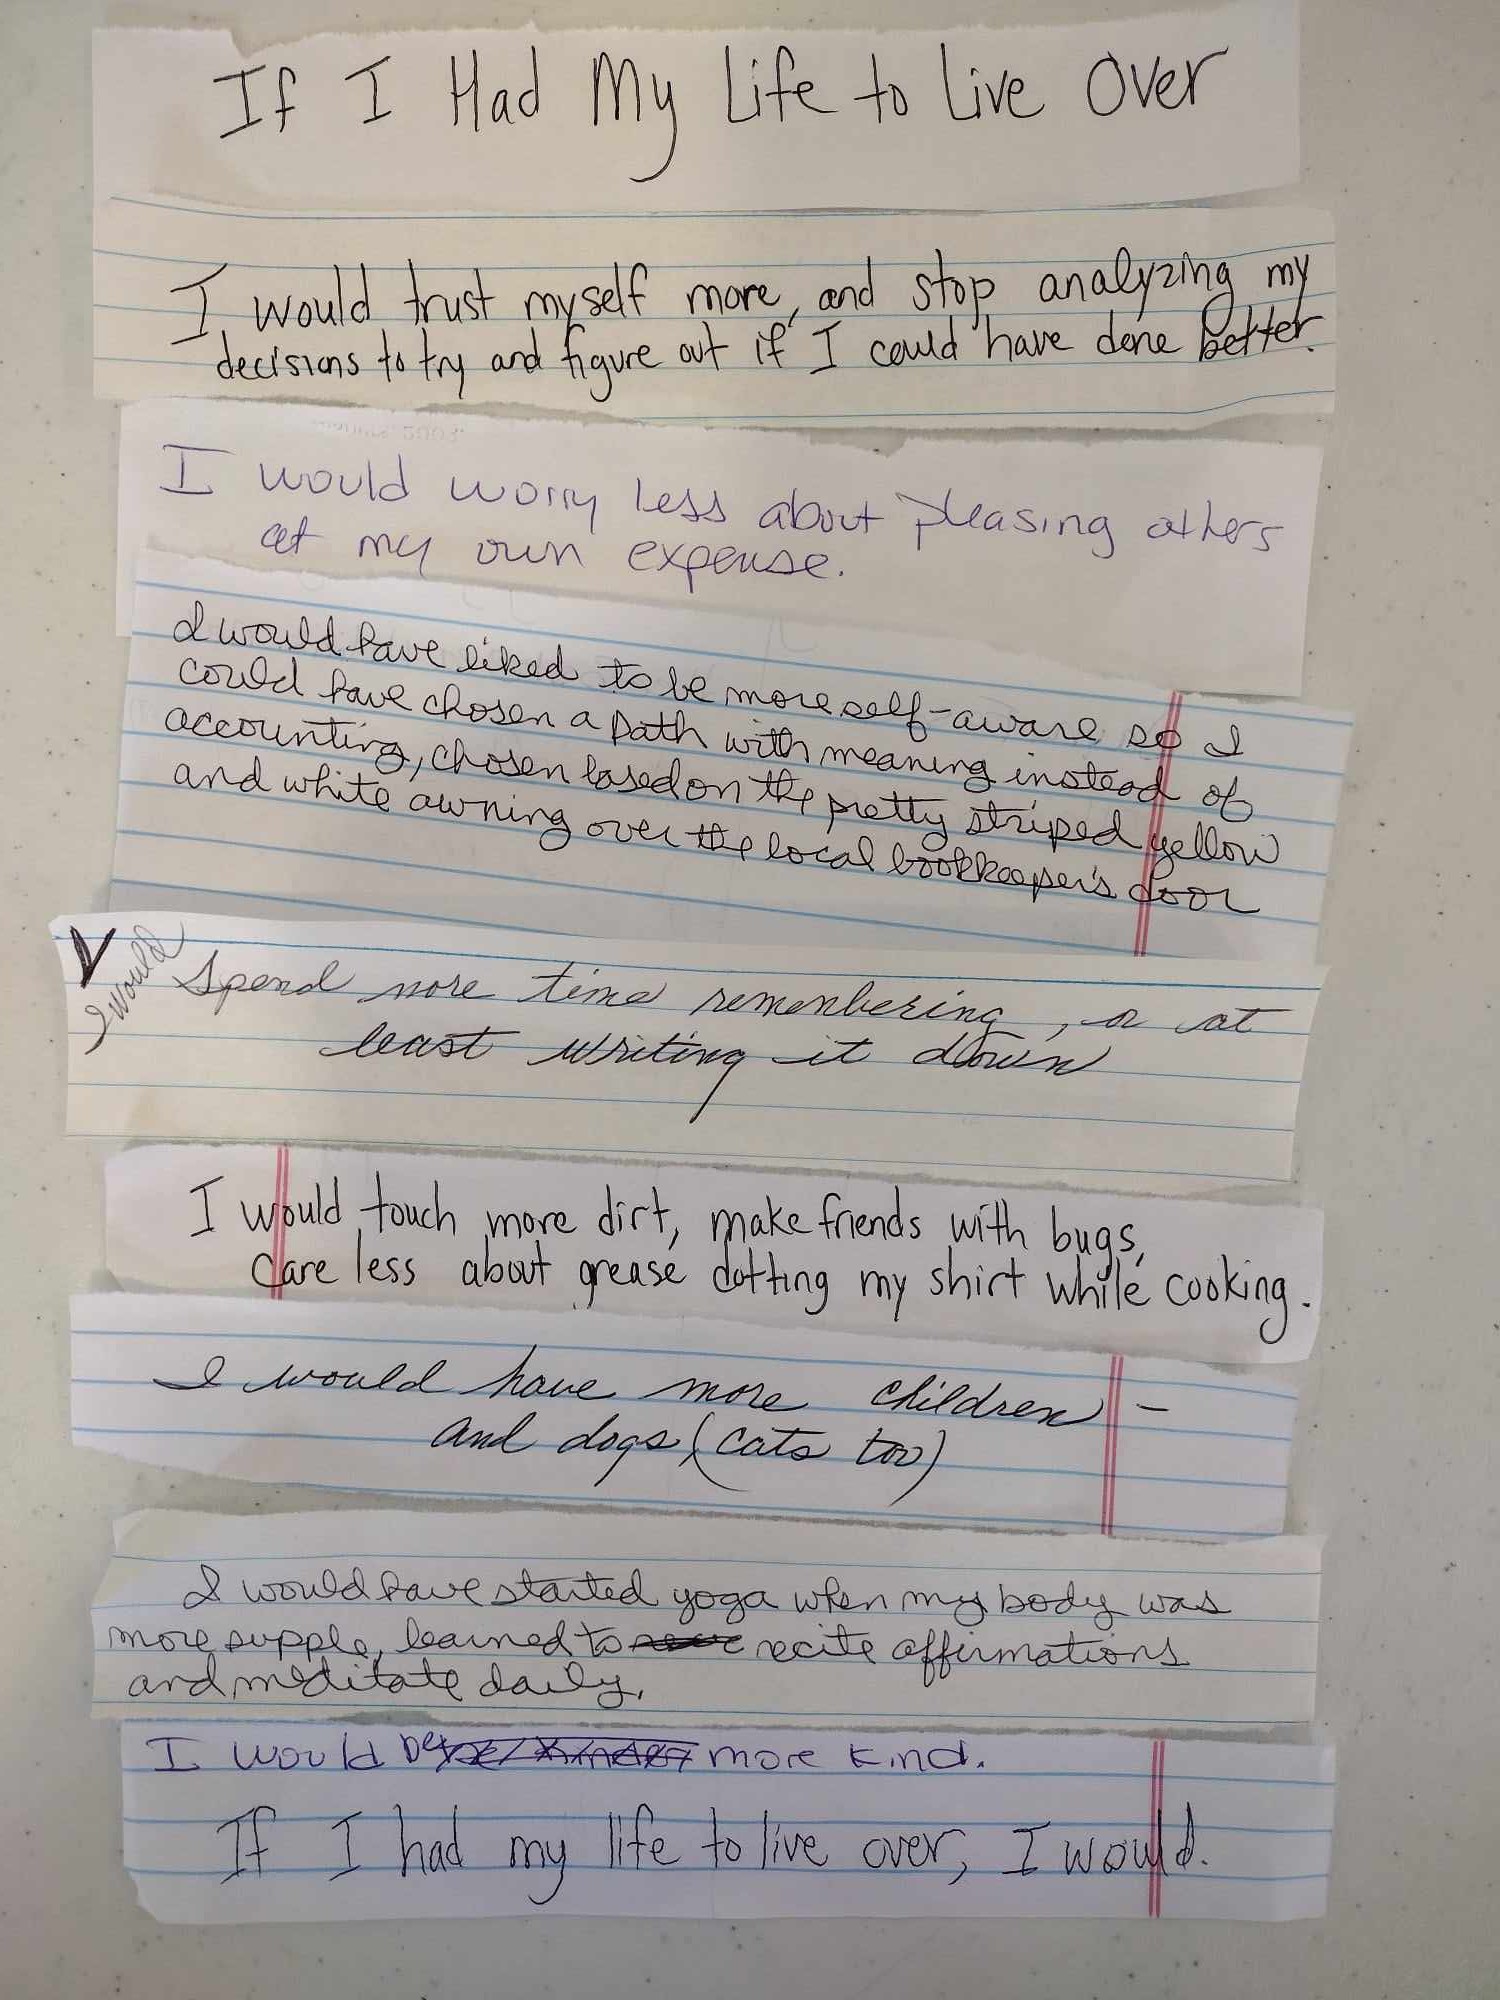 If I Had My Life to Live Over
I would trust myself more, and stop analyzing my
decisions to try and figure out if I could have done better.
I would worry less about pleasing others
at my own expense.
I would have liked to be more self-aware so I
could have chosen a path with meaning instead of
accounting, chosen based on the pretty striped yellow
and white awning over the local bookkeeper's door
I would Spend more time remembering, or at
least writing it down
I would touch more dirt, make friends with bugs,
care less about grease dotting my shirt while cooking.
I would have more children -
and dogs (cats too)
I would have started yoga when my body was
more supple, learned to recite affirmations
and meditate daily.
I would be more kind.
If I had my life to live over, I would.